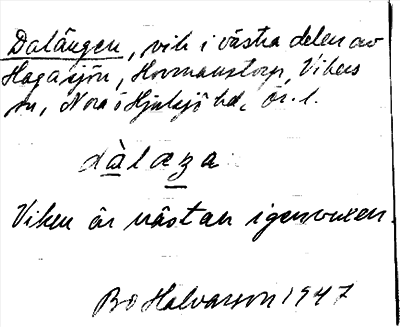 Dalängen, vik i västra delen av
Hagasjön, Hovmanstorp, Vikers
sn, Nora o Hjulsjö hd, Ör. l.
dàlaꝫa
Viken är nästan igenvuxen.
Bo Halvarson 1947